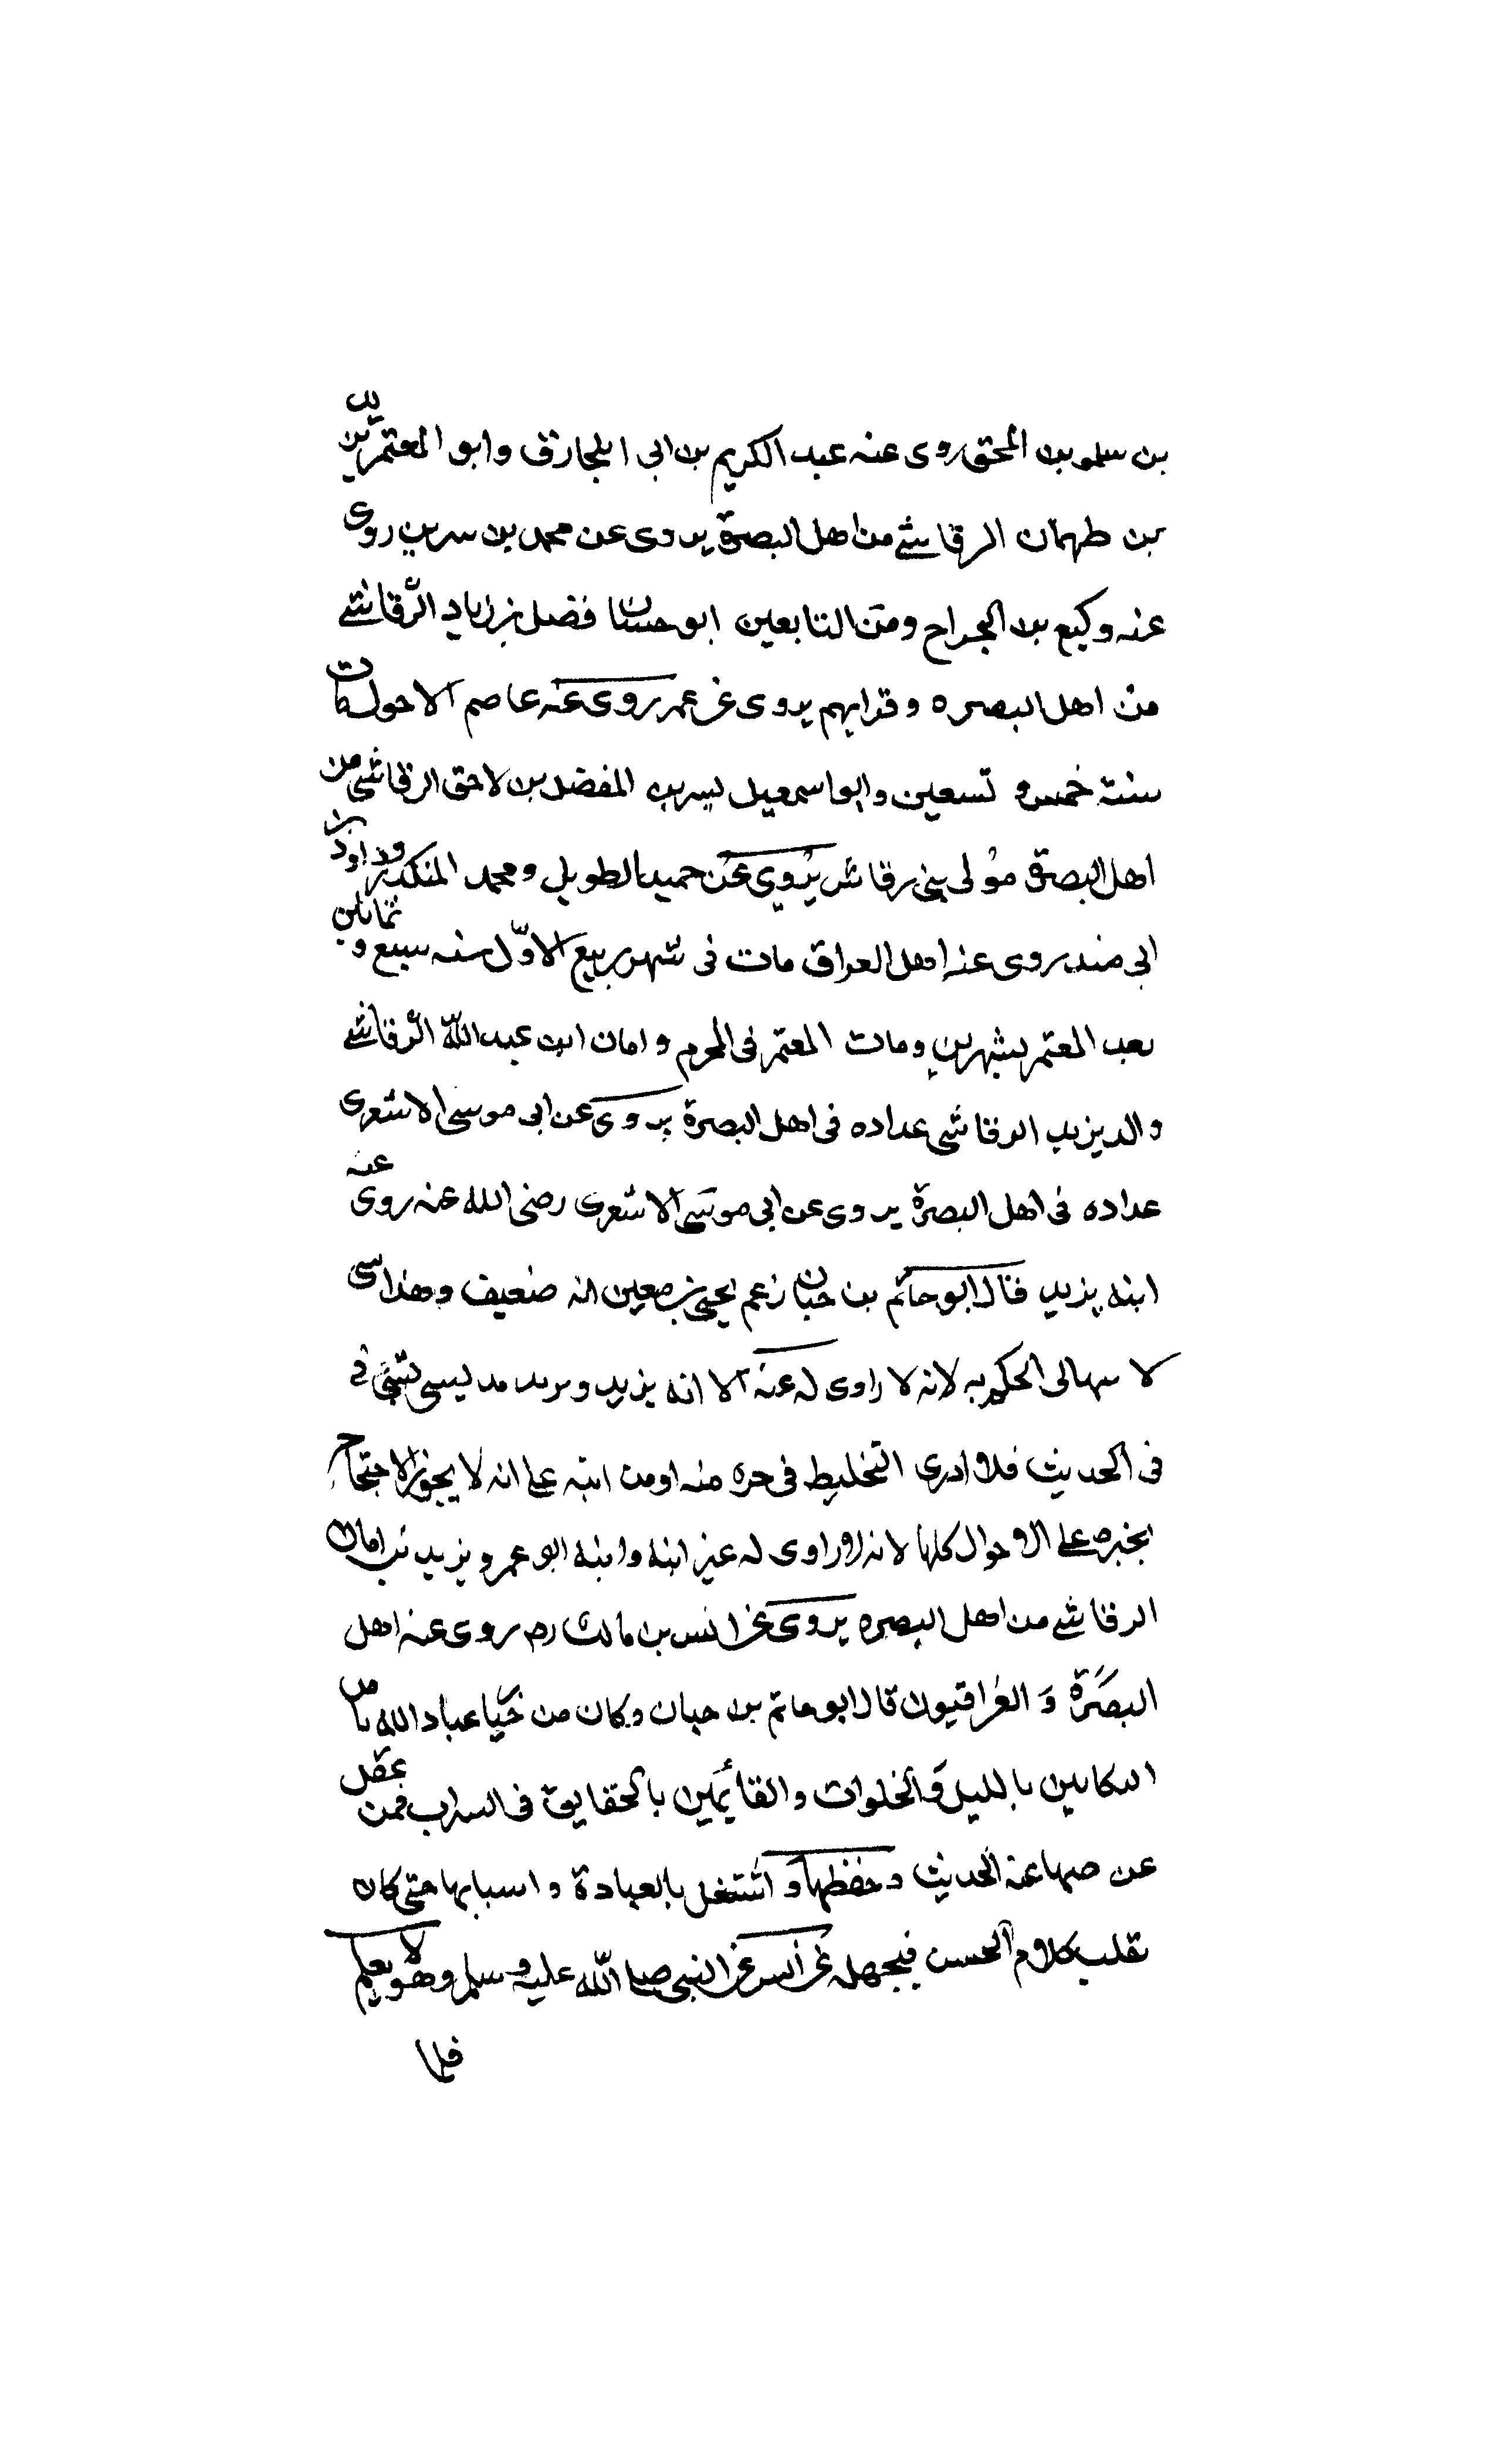 بن سلمو بن المحق روى عنه عبد الكريم بن ابى المخارق وابو المعتمر يزيد
بن طهمان الرقاشے من اهل البصرة يروى عن محمد بن سيرين روى
عنه وكيع بن الجراح ومن التابعين ابو حسان فضل بن زياد الرّقاشے
من اهل البصره و قرايهم يروى عن عمر روى عنه عاصم الاحول مات
سنة خمس و تسعين وابو اسمعيل بشر بن المفضل بن لاحق الرقاشى من
اهل البصرة مولى بنى رقاش يروى عن حميد الطويل و محمد المنكدر و داود بن
ابى هند روى عنه اهل العراق مات فى شهر ربيع الاوّل سنه سبع و ثمانين
بعد المعتمر بشهرين ومات المعتمر فى المحرم و امان ابن عبد اللّه الرّقاشے
والد يزيد الرقاشى عداده فى اهل البصرة يروى عن ابى موسى الاشعرى
عداده فى اهل البصرة يروى عن ابى موسى الاشعرى رضى الله عنه روى عنه
ابنه يزيد قال ابو حاتم بن حبان زعم يحيى بن معين انه ضعيف وهذا شى
لا سهالى الحكم به لانه لا راوى له عنه الا انه يزيد و يزيد ليس بشئ فى
فى الحديث فلا ادرى التخليط فى حره منه او من ابنه على انه لا يجوز الاحتجاج
بخبره على الاحوال كلها لانه لا راوى له غير ابنه وابنه ابو عمرو يزيد بن امان
الرقاشے من اهل البصره يروى عن انس بن مالك رضه روى عنه اهل
البصرة و العراقيون قال ابو حاتم بن حبان وكان من خيا عباد الله من
البكايين بالليل والخلوات والقائمين بالحقايق فى السراب فمن عقل
عن صها عنه الحديث وحفظها و اشتغل بالعبادة و اسبابها حتى كان
تقلب كلام الحسن فيجهله عن انس عن النبى صلى اللّه عليه وسلم وهو لا يعلم
فلما